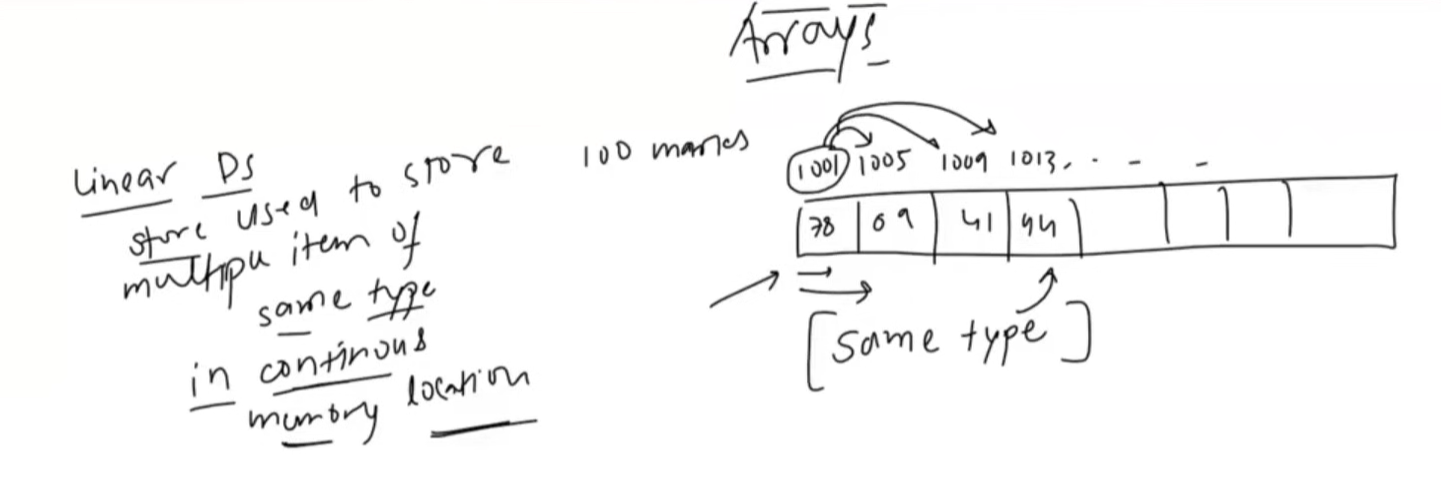 Arrays
Linear DS
store used to store 100 marks
multiple item of
same type
in continous
memory location
1001 1005 1009 1013, . - -
78 69 41 94
[same type]